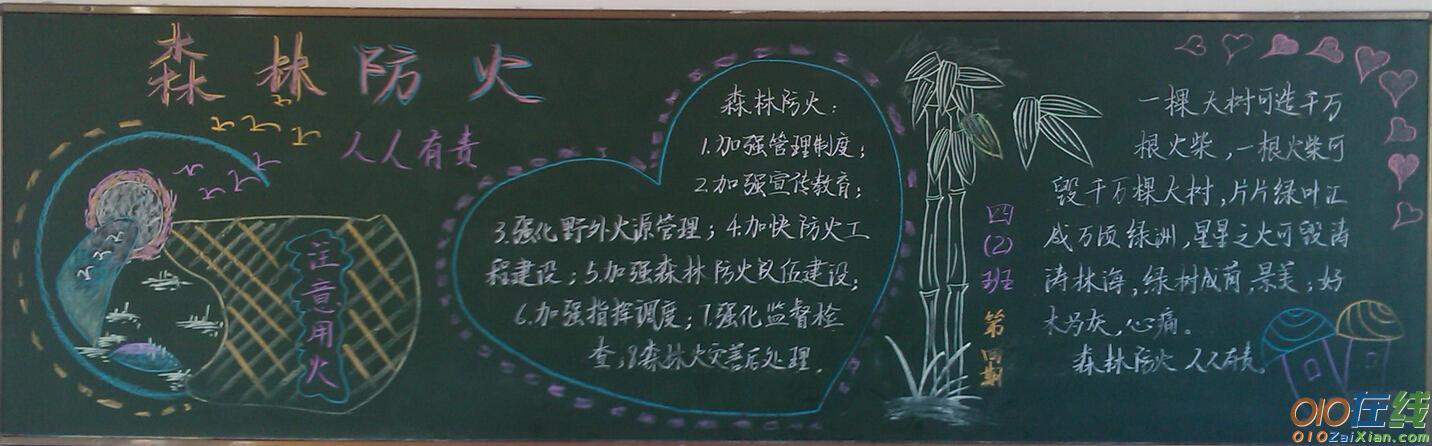 森林防火
人人有责
注意用火
森林防火:
1.加强管理制度;
2.加强宣传教育;
3.强化野外火源管理;4.加快防火工
程建设;5.加强森林防火队伍建设;
6.加强指挥调度;7.强化监督检
查;8森林火灾善后处理.
四(2)班
第四期
一棵大树可造千万
根火柴,一根火柴可
毁千万棵大树,片片绿叶汇
成万顷绿洲,星星之火可毁涛
涛林海,绿树成荫,景美;好
木为灰,心痛。
森林防火 人人有责。
010在线
010ZaiXian.com